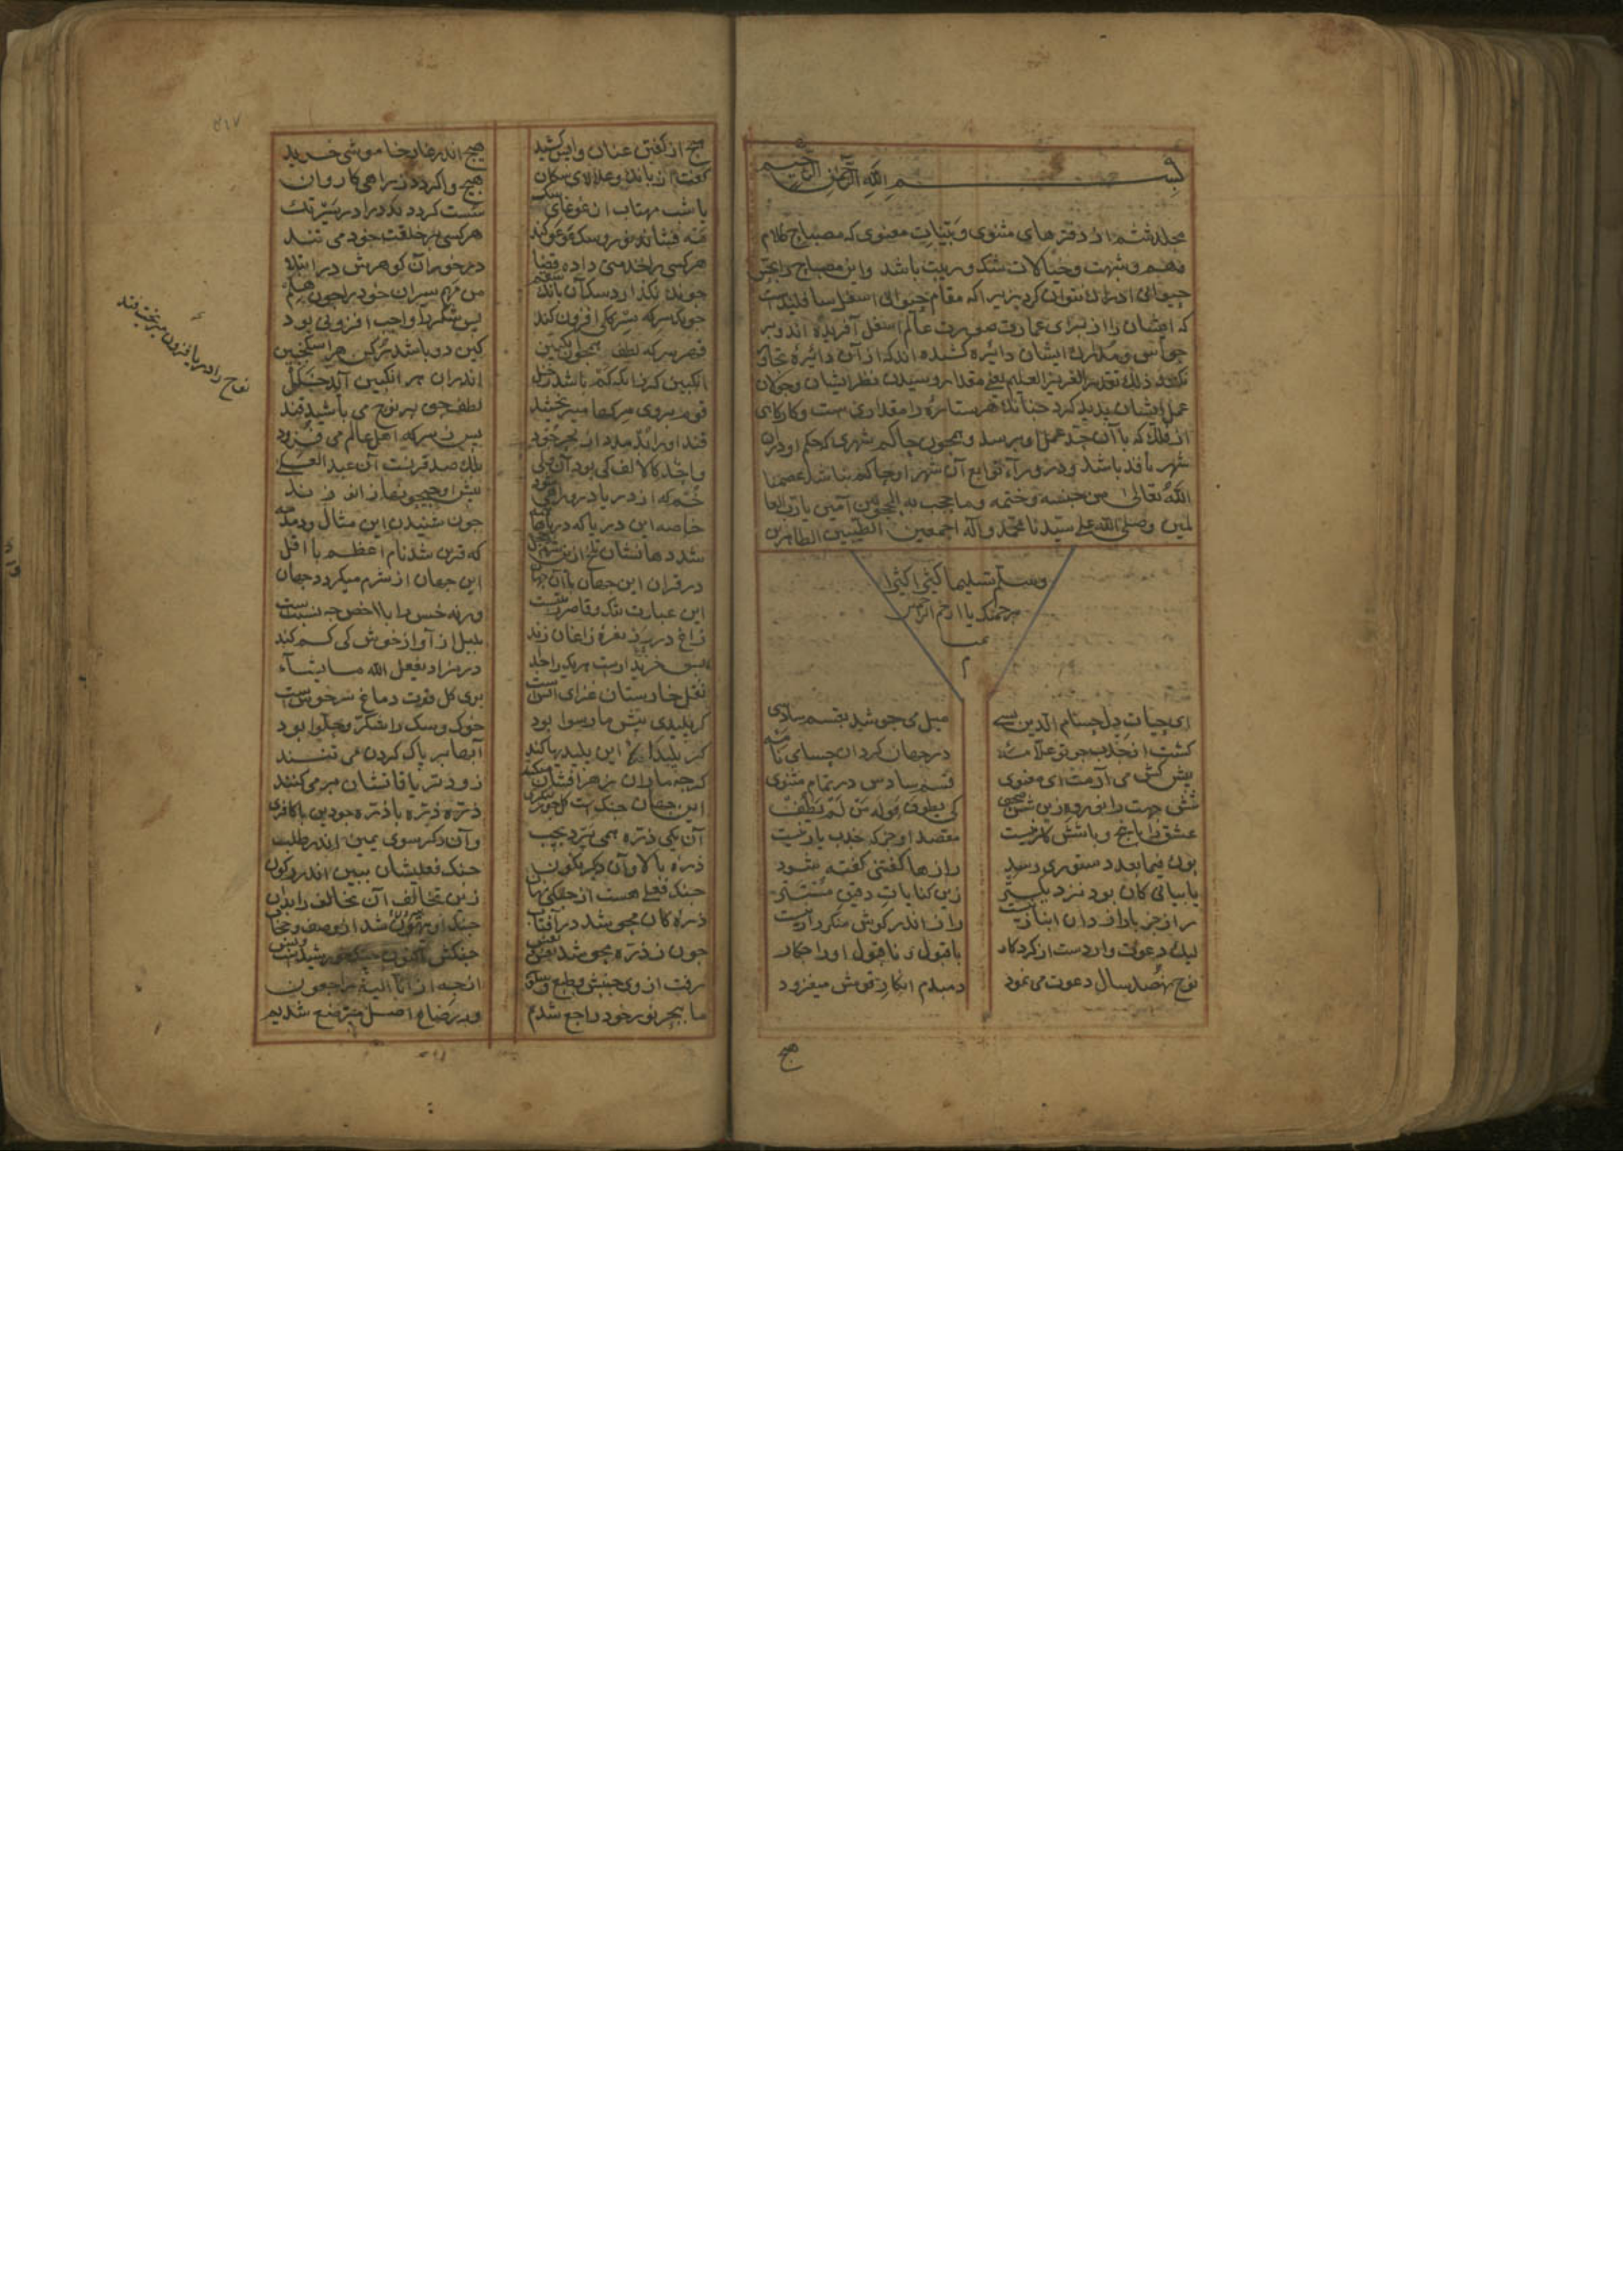 بسم الله الرحمن الرحيم
مجلد ششم از دفترهای مثنوی و بینات معنوی که مصباح ظلام
وهم و شبهت و خیالات شک و ریبت باشد و این مصباح را بحس
حیوانی ادراک نتوان کرد زیرا که مقام حیوانی اسفل سافلین است
که ایشان را از برای عمارت صورت عالم اسفل آفریده اند و بر
حواس و مدارک ایشان دایره کشیده اند که از آن دایره تجاوز
نکنند ذلك تقدیر العزیز العلیم یعنی مقدار رسیدن نظر ایشان و جولان
عمل ایشان پدید کرد چنانک هر ستاره را مقداری ست و کارگاهی
از فلک که تا آن حد عمل او برسد و همچون حاکم شهری که حکم او در آن
شهر نافذ باشد و در ورآء توابع آن شهر او حاکم نباشد عصمنا
الله تعالی من حبسه و ختمه وما حجب به المحجوبین آمین یا رب العا
لمین وصلی الله علی سیدنا محمد و آله اجمعین الطیبین الطاهرین
وسلم تسلیما کثیرا کثیرا
برحمتک یا ارحم الراحمین
ای حیات دل حسام الدین بسی میل می جوشد بقسم سادسی
کشت از جذب چو تو علامه در جهان کردان حسامی نامه
پیش کش می آرمت ای معنوی قسم سادس در تمام مثنوی
شش جهت را نور ده زین شش صحف کی یطوف حوله من لم یطف
عشق را با پنج و با شش کار نیست مقصد او جز که جذب یار نیست
بوک فیما بعد دستوری رسد رازها کفتنی کفته شود
با بیانی کان بود نزدیکتر زین کنایات دقیق مستتر
راز جز با رازدان انباز نیست راز اندر کوش منکر راز نیست
لیک دعوت واردست از کردکار با قبول و ناقبول او را چه کار
نوح نهصد سال دعوت می نمود دمبدم انکار قومش میفزود
هیچ
هیچ از کفتن عنان واپس کشید هیچ اندر غار خاموشی خزید
کفت از بانک و علالای سکان هیچ واکردد ز راهی کاروان
یا شب مهتاب از غوغای سک سست کردد بدر را در سیر تک
مه فشاند نور و سک عوعو کند هر کسی بر خلقت خود می تند
هر کسی را خدمتی داده قضا در خور آن کوهرش در ابتلا
چونک نکذارد سک آن بانک سقم من مهم سیران خود را چون هلم
چونک سرکه سرککی افزون کند پس شکر را واجب افزونی بود
قهر سرکه لطف همچون انکبین کین دو باشد رکن هر اسکنجبین
انکبین کر زانکه کم باشد ز خل اندر آن هر انکبین آید خلل
قوم بر وی سرکها میریختند لطف حق بر نوح می پاشید قند
قند او را بد مدد از بحر خود پس ز سرکه اهل عالم می فزود
واحد کالالف کی بود آن ولی بلک صد قرنست آن عبد العلی
خم که از دریا درو راهی بود پیش او جیحونها زانو زند
خاصه این دریا که دریاها همه چون شنیدند این مثال و دمدمه
شد دهانشان تلخ ازین شرم و خجل که قرین شد نام اعظم با اقل
در قران این جهان با آن جهان این جهان از شرم میکردد جهان
این عبارت تنک و قاصر رتبتست ورنه خس را با اخص چه نسبتست
زاغ در رز نعره زاغان زند بلبل از آواز خوش کی کم کند
پس خریدارست هر یک را جدا در مزاد یفعل الله ما یشآء
نقل خارستان غذای آتشست بوی کل قوت دماغ سرخوشست
کر پلیدی پیش ما رسوا بود خوک و سک را شکر و حلوا بود
کر پلیدان این پلیدیها کنند آبها بر پاک کردن می تنند
کرچه ماران زهر افشان میکنند زود تریاقاتشان بر می کنند
این جهان جنکست کل چون بنکری ذره ذره با ذره چو دین با کافری
آن یکی ذره همی پرد بچپ وآن دکر سوی یمین اندر طلب
ذره بالا وآن دکر نکون جنک فعلیشان ببین اندر رکون
جنک فعلی هست از جنک نهان زین تخالف آن تخالف را بدان
ذره کان محو شد در آفتاب جنک او بیرون شد از وصف و حساب
چون ز ذره محو شد نفس و نفس جنکش اکنون جنک خورشیدست
رفت از وی جنبش طبع و سکون از چه از انا الیه راجعون
ما ببحر نور خود راجع شدیم وز رضاع اصل مسترضع شدیم
نوح را دریا فزون میریخت قند